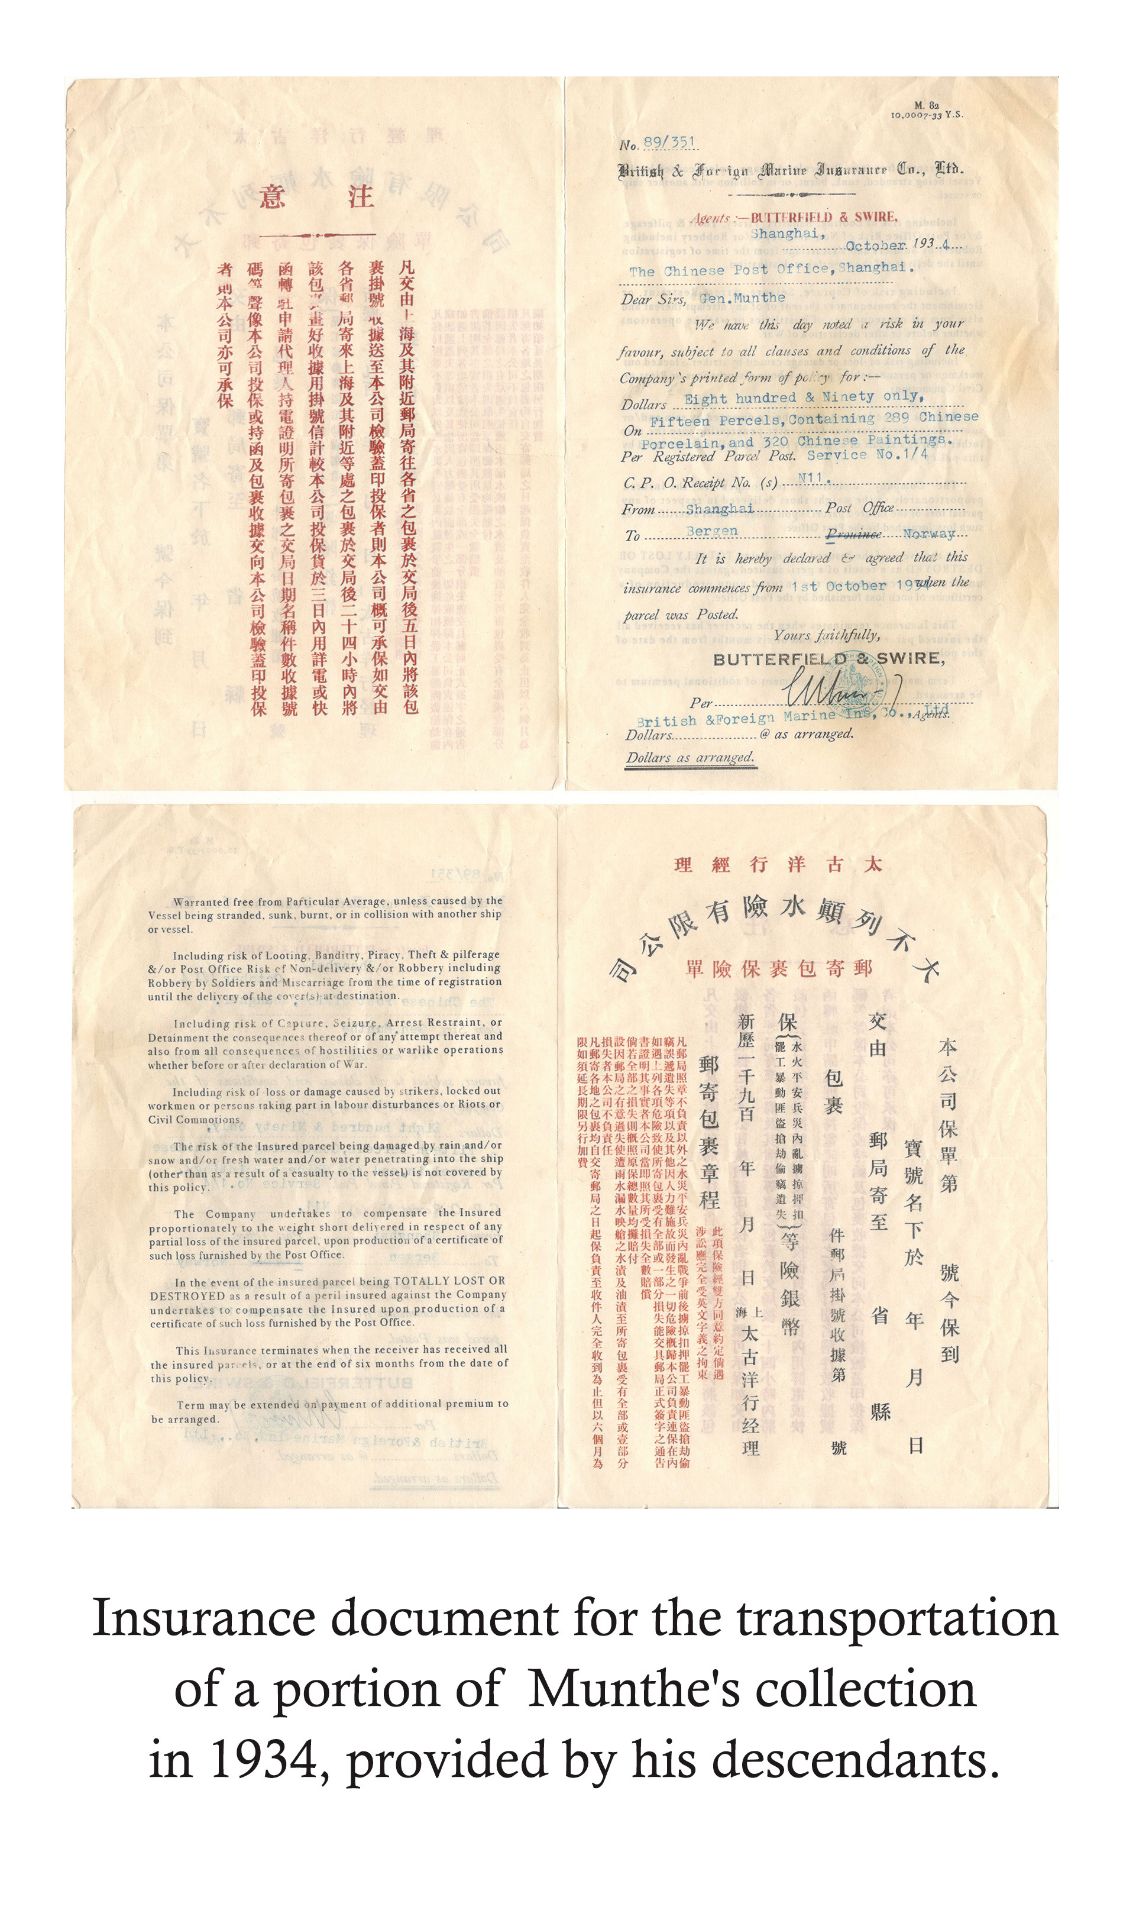 意 注
凡交由上海及其附近郵局寄往各省之包裹於交局後五日內將該包
裹掛號收據送至本公司檢驗蓋印投保者則本公司概可承保如交由
各省郵局寄來上海及其附近等處之包裹於交局後二十四小時內將
該包裹畫好收據用掛號信計較本公司投保貨於三日內用詳電或快
函轉駐申請代理人持電證明所寄包裹之交局日期名稱件數收據號
碼等聲像本公司投保或持函及包裹收據交向本公司檢驗蓋印投保
者則本公司亦可承保
M. 82
10,0007-33 Y.S.
No. 89/351
British & Foreign Marine Insurance Co., Ltd.
Agents:—BUTTERFIELD & SWIRE,
Shanghai,
October 1934
The Chinese Post Office, Shanghai.
Dear Sirs, Gen.Munthe
We have this day noted a risk in your
favour, subject to all clauses and conditions of the
Company's printed form of policy for:—
Dollars Eight hundred & Ninety only,
On Fifteen Percels, Containing 289 Chinese
Porcelain, and 320 Chinese Paintings.
Per Registered Parcel Post. Service No.1/4
C. P. O. Receipt No. (s) N11.
From Shanghai Post Office
To Bergen Province Norway
It is hereby declared & agreed that this
insurance commences from 1st October 1934 when the
parcel was Posted.
Yours faithfully,
BUTTERFIELD & SWIRE,
Per
British &Foreign Marine Ins, Co., Ltd Agents.
Dollars @ as arranged.
Dollars as arranged.
Warranted free from Particular Average, unless caused by the
Vessel being stranded, sunk, burnt, or in collision with another ship
or vessel.
Including risk of Looting, Banditry, Piracy, Theft & pilferage
&/or Post Office Risk of Non-delivery &/or Robbery including
Robbery by Soldiers and Miscarriage from the time of registration
until the delivery of the cover(s) at destination.
Including risk of Capture, Seizure, Arrest Restraint, or
Detainment the consequences thereof or of any attempt thereat and
also from all consequences of hostilities or warlike operations
whether before or after declaration of War.
Including risk of loss or damage caused by strikers, locked out
workmen or persons taking part in labour disturbances or Riots or
Civil Commotions.
The risk of the Insured parcel being damaged by rain and/or
snow and/or fresh water and/or water penetrating into the ship
(other than as a result of a casualty to the vessel) is not covered by
this policy.
The Company undertakes to compensate the Insured
proportionately to the weight short delivered in respect of any
partial loss of the insured parcel, upon production of a certificate of
such loss furnished by the Post Office.
In the event of the insured parcel being TOTALLY LOST OR
DESTROYED as a result of a peril insured against the Company
undertakes to compensate the Insured upon production of a
certificate of such loss furnished by the Post Office.
This Insurance terminates when the receiver has received all
the insured parcels, or at the end of six months from the date of
this policy.
Term may be extended on payment of additional premium to
be arranged.
理經行洋古太
司公限有險水顚列不大
單險保裹包寄郵
本公司保單第 號今保到
寶號名下於 年 月 日
交由 郵局寄至 省 縣
包裹 件郵局掛號收據第 號
保
水火平安兵災內亂擄掠押扣
罷工暴動匪盜搶劫偷竊遺失
等險銀幣
新歷一千九百 年 月 日
上海 太古洋行经理
郵寄包裹章程
此項保險經雙方同意約定倘遇
涉訟應完全受英文字義之拘束
凡郵局照章不負責以外之水災平安兵災內亂戰爭前後擄掠扣押罷工暴動匪盜搶劫偷
竊誤遞遺失等項以及其他因人力難施故而發生之一切危險概歸本公司負責連保在內
如遇上列各項危險致使所寄包裹受有全部或一部分損失能交具郵局正式簽字之通告
書證明其事實者本公司當即照其所受損失全數賠償
倘若全部之損失則概照原保總數量均攤賠付
設因郵局之有意過失使遭雨水漏水映艙之水漬及油漬至所寄包裹受有全部或壹部分
損失者本公司不負責任
凡郵寄各地之包裹均自交寄郵局之日起保負責至收件人完全收到為止但以六個月為
限如須延長期限另行加費
Insurance document for the transportation
of a portion of Munthe's collection
in 1934, provided by his descendants.